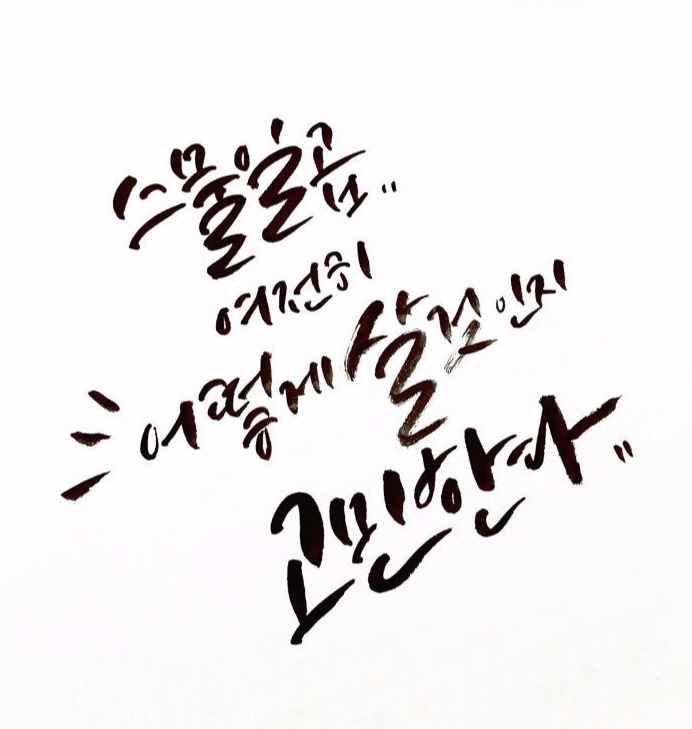 스물일곱..
여전히
어떻게 살 것인지
고민한다"